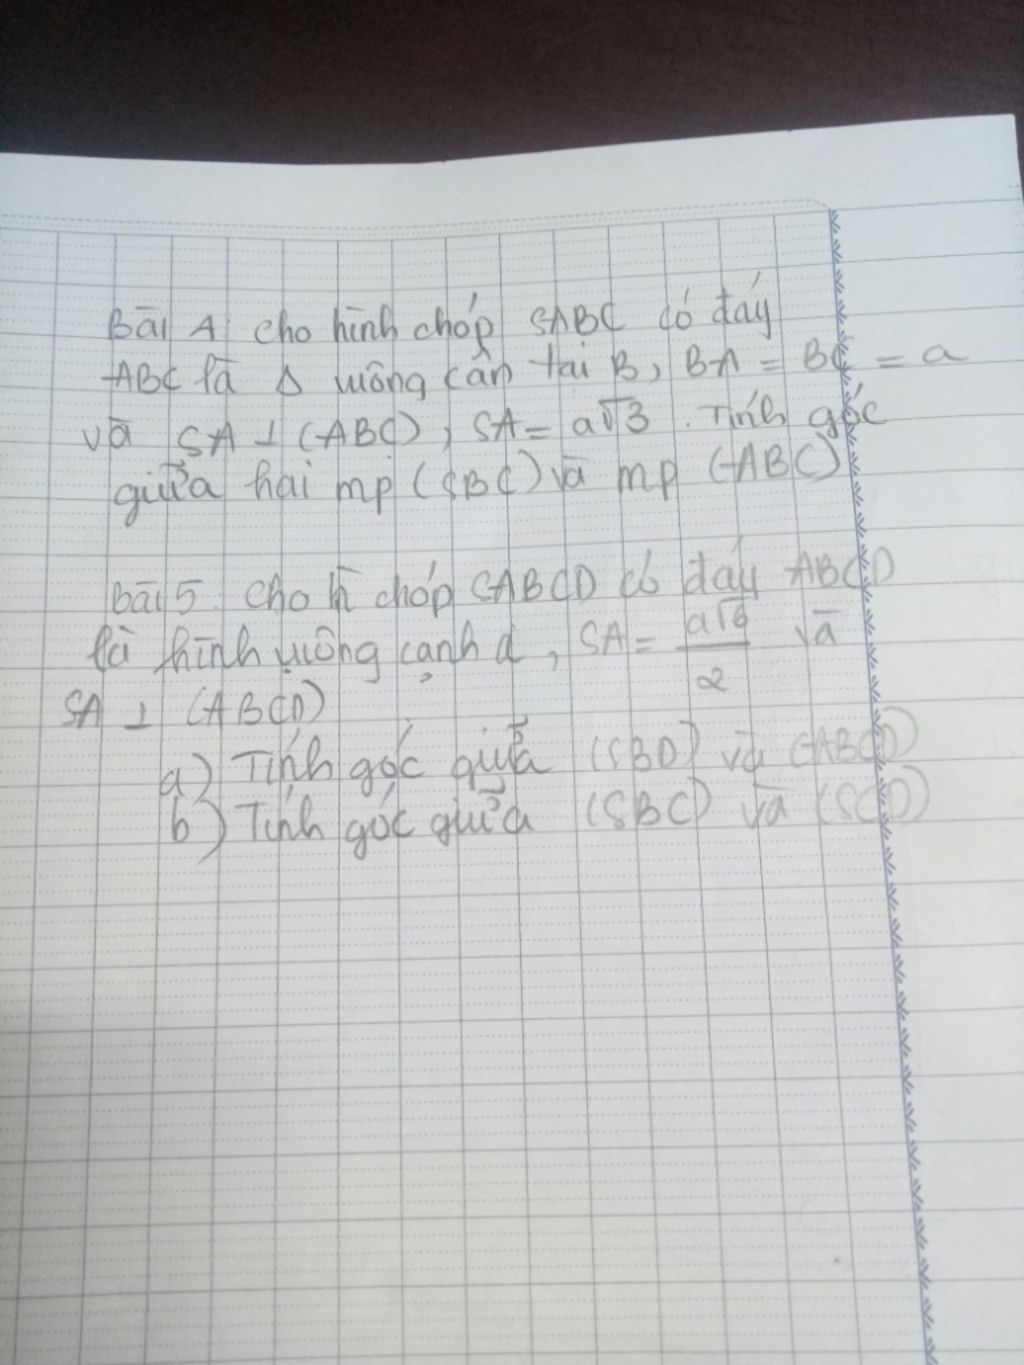 Bài 4 cho hình chóp SABC có đáy
ABC là Δ vuông cân tại B, BA = BC = a
và SA ⊥ (ABC), SA = a√3. Tính góc
giữa hai mp (SBC) và mp (ABC)
bài 5. Cho h chóp SABCD có đáy ABCD
là hình vuông cạnh a, SA = a√6/2 và
SA ⊥ (ABCD)
a) Tính góc giữa (SBD) và (ABCD)
b) Tính góc giữa (SBC) và (SCD)